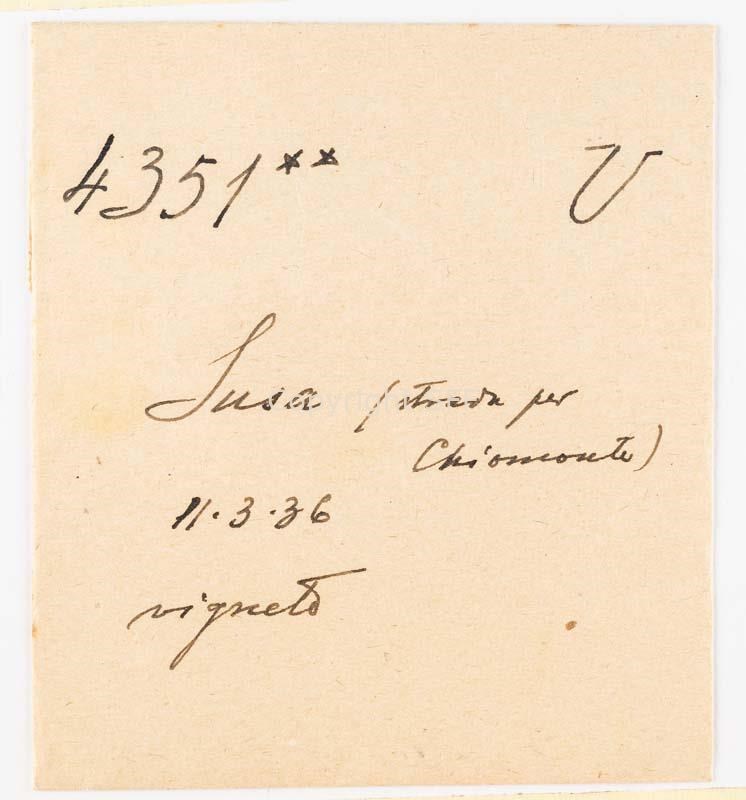 4351** V
Susa (strada per
Chiomonte)
11.3.36
vigneto